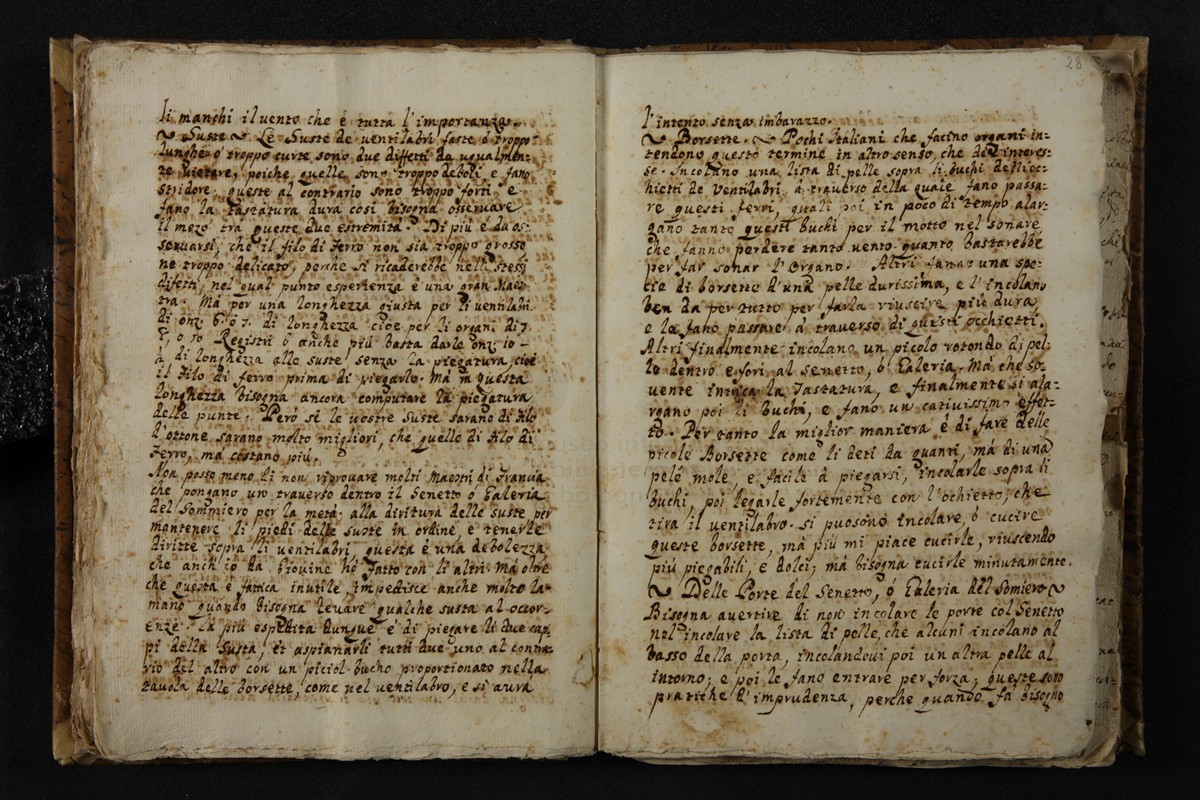 li manchi il vento che è tutta l'importanza.
~ Suste ~ Le Suste de ventilabri fatte ò troppo
lunghe ò troppo curte sono due diffetti da ugualmen-
te vietare, poiche quelle sono troppo deboli e fano
stridore; queste al contrario sono troppo forti e
fano la tastatura dura cosi bisogna osservare
il mezo trà queste due estremità. Di più è da os-
servarsi, che il filo di ferro non sia troppo grosso
ne troppo delicato, perche si ricaderebbe nelli stessi
difetti, nel qual punto esperienza è una gran Maes
tra. Mà per una longhezza giusta per li ventilabri
di onz. 6. ò 7. di longhezza cioe per li organi di 7.
8, ò 10 Registri ò anche più basta darle onz. 10 -
di longhezza alle suste senza la piegatura, cioè
il filo di ferro prima di piegarlo. Mà in questa
longhezza bisogna ancora computare la piegatura
delle punte. Però se le vostre Suste sarano di filo
d'ottone sarano molto migliori, che quelle di filo di
ferro, mà costano più.
Non posso meno di non riprovare molti Maestri di Francia
che pongano un traverso dentro il Senetto ò Galeria
del Sommiero per la metà alla diritura delle suste per
mantenere li piedi delle suste in ordine, e tenerle
diritte sopra li ventilabri, questa è una debolezza
che anch'io da Giovine hò fatto con li altri mà oltre
che questa è fattica inutile, impedisce anche molto la
mano quando bisogna levare qualche susta al occor-
enze. La più espedita dunque è di piegare li due cap-
pi della Susta, et aspianarli tutti due uno al contra-
rio del altro con un piciol bucho proportionato nella
tavola delle Borsette, come nel ventilabro, e si avrà
28
l'intento senza imbarazzo.
~ Borsette. ~ Pochi Italiani che facino organi in-
tendono questo termine in altro senso, che del interes-
se. Incolano una lista di pelle sopra li buchi delli oc-
chietti de ventilabri, à traverso della quale fano passa-
re questi ferri, quali poi in poco di tempo alar-
gano tanto questi buchi per il motto nel sonare
che fanno perdere tanto vento quanto bastarebbe
per far sonar l'Organo. Altri fanno una spe-
cie di borsette d'una pelle durissima, e l'incolano
ben da per tutto per farla riuscire più dura
e la fano passare à traverso di questi occhietti.
Altri finalmente incolano un picolo rotondo di pel-
le dentro e fori al senetto, ò Galeria. Mà che so-
vente intrica la Tastatura, e finalmente si ala-
rgano poi li buchi, e fano un cativissimo effet-
to. Per tanto la miglior maniera è di fare delle
picole Borsette come li deti da guanti, mà di una
pele mole, e facile à piegarsi, incolarle sopra li
buchi, poi legarle fortemente con l'ochietto, che
tira il ventilabro. Si puosono incolare, ò cucire
queste borsette, mà più mi piace cucirle, riuscendo
più piegabili, e dolci; mà bisogna cucirle minutamente.
~ Delle Porte del Senetto, ò Galeria del Somiero ~
Bisogna avertire di non incolare le porte col Senetto
nel incolare la lista di pelle, che alcuni incolano al
basso della porta, incolandovi poi un altra pelle al
intorno; e poi le fano entrare per forza; queste sono
pratiche d'imprudenza, perche quando fà bisogno